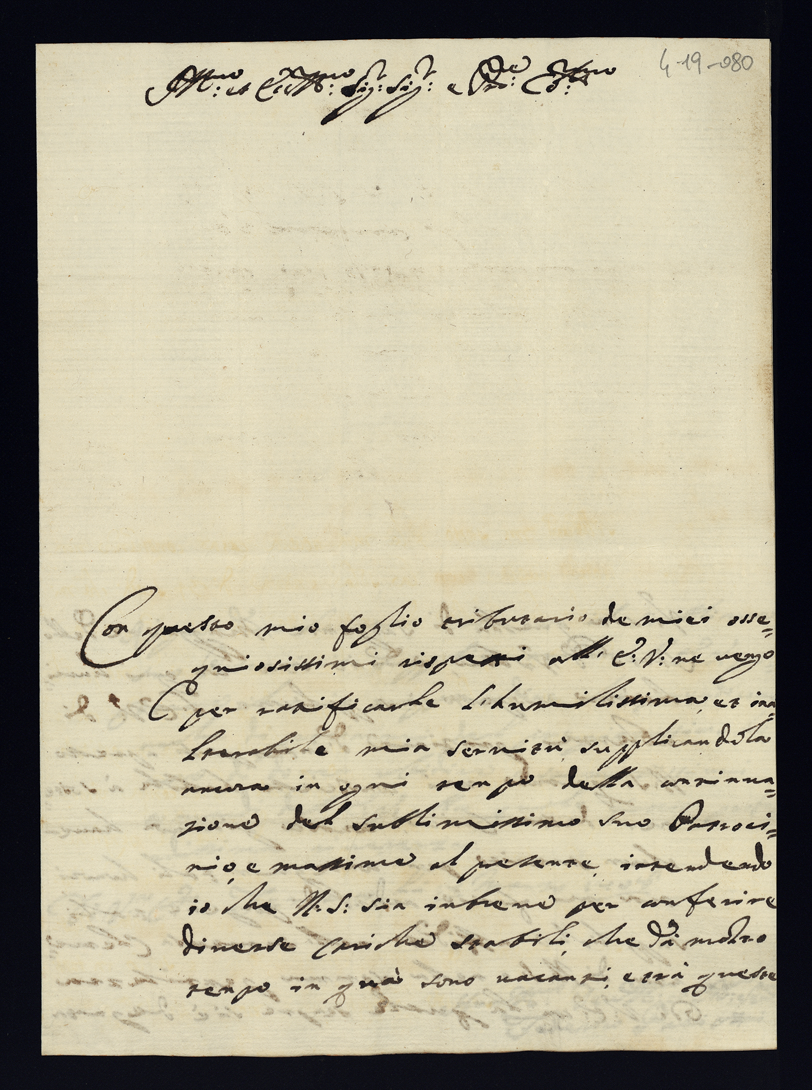 4-19-080
Ill:mo et Ecc:mo Sig:r Sig:r e Pro:ne Col:mo
Con questo mio foglio tributario de miei osse=
quiosissimi rispetti all' E: V: ne vengo
per ratificarle l'humilissima, et ina
lterabile mia servitù supplicandola
ancora in ogni tempo della continua=
zione del sublimissimo suo Patroci=
nio, e massime al presente, intendendo
io che N: S: sia in breve per conferire
diverse cariche stabili, che dà molto
tempo in quà sono vacanti, e trà queste